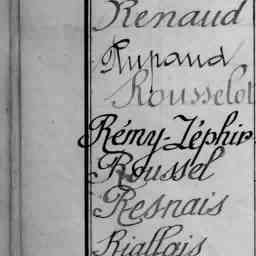 Renaud
Rupaud
Rousselot
Rémy-Zéphir
Roussel
Resnais
Riallais